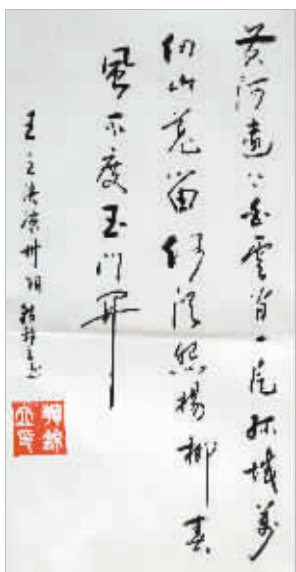 黄河遠上白雲間一片孤城萬
仞山羌笛何須怨楊柳春
風不度玉门関
王之渙凉州詞